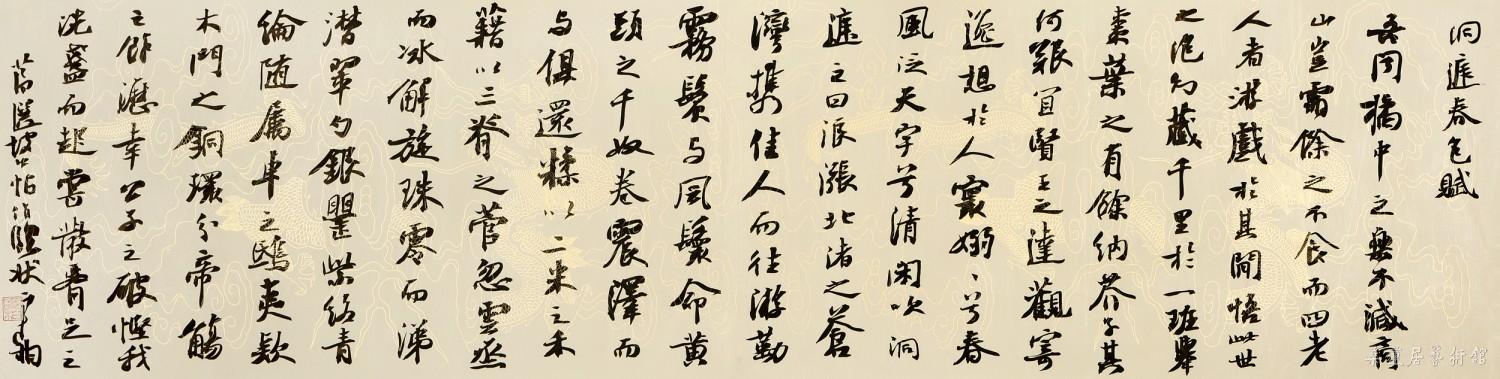 洞庭春色賦
吾聞橘中之樂不減商
山豈霜餘之不食而四老
人者游戲於其間悟此世
之泡幻藏千里於一班舉
棗葉之有餘納芥子其
何艱宜賢王之達觀寄
逸想於人寰嫋〻兮春
風泛天宇兮清閑吹洞
庭之白浪漲北渚之蒼
灣攜佳人而往游勤
霧鬢與風鬟命黃
頭之千奴卷震澤而
與俱還糅以二米之禾
藉以三脊之菅忽雲烝
而冰解旋珠零而涕
潸翠勺銀罌紫絡青
綸隨屬車之鴟夷款
木門之銅環分帝觴
之餘瀝幸公子之破慳我
洗盞而起嘗散腰足之
居藝術館